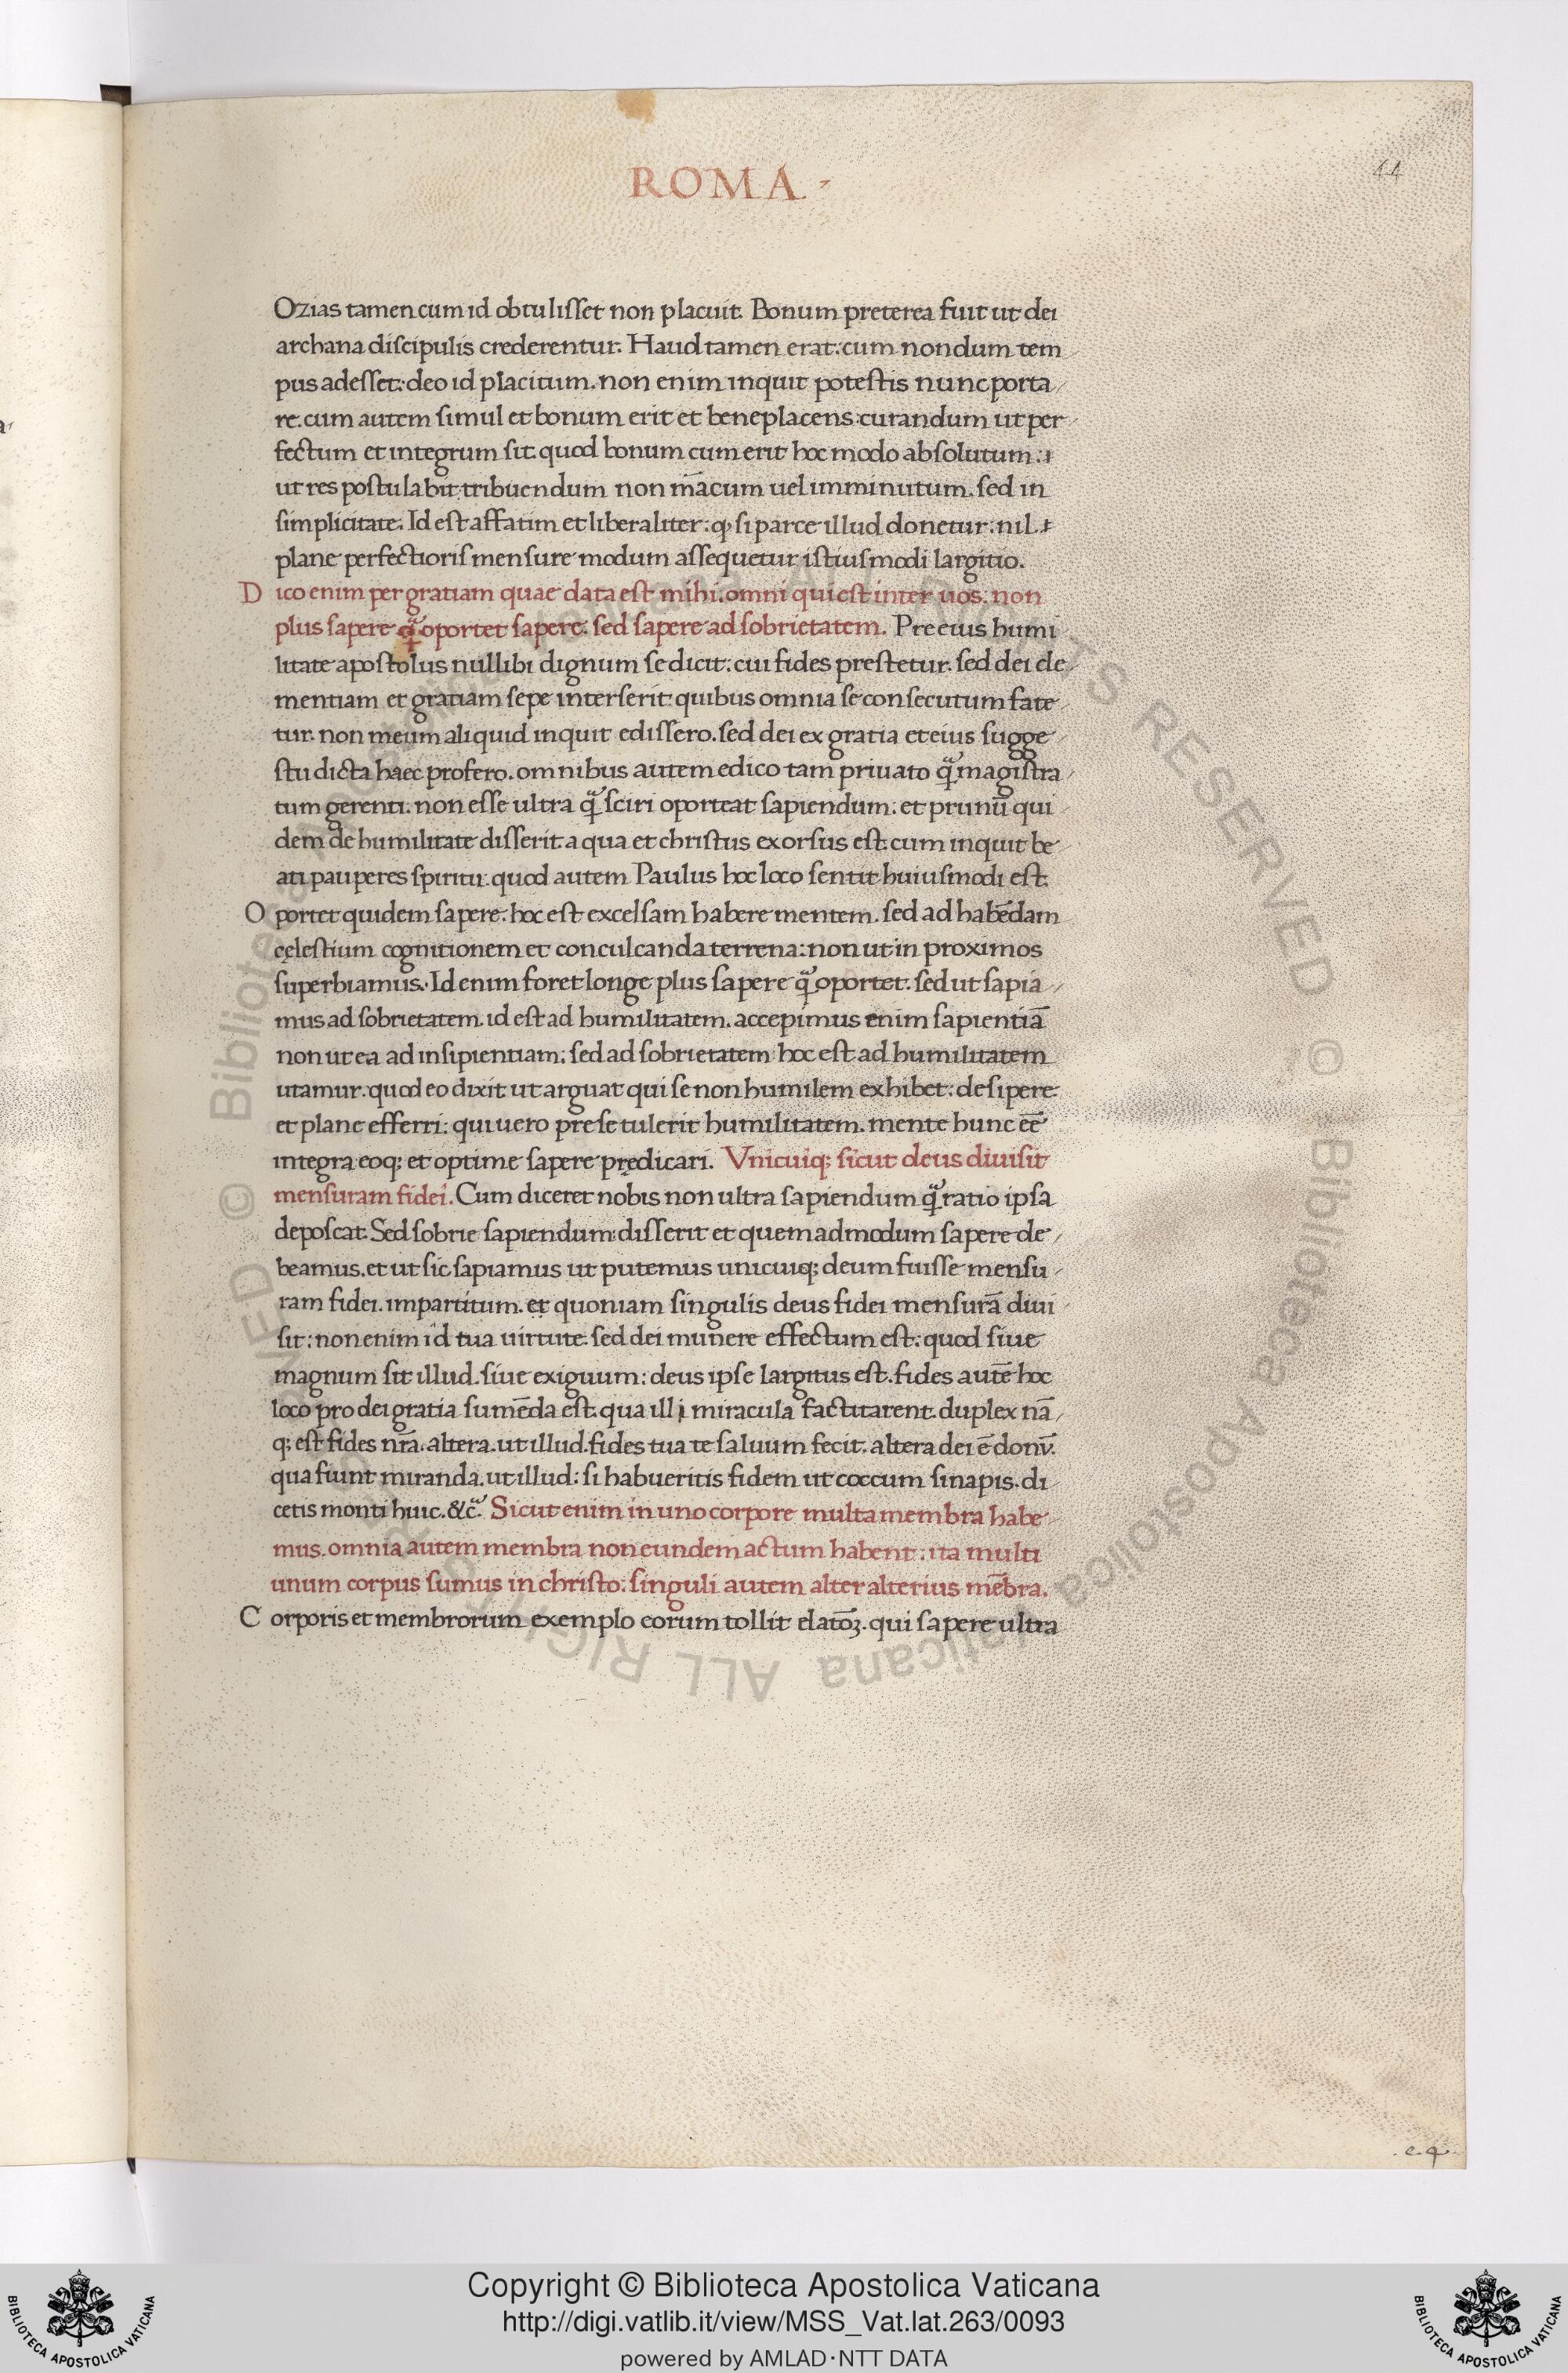 ROMA
44
Ozias tamen cum id obtulisset non placuit. Bonum preterea fuit ut dei
archana discipulis crederentur. Haud tamen erat: cum nondum tem
pus adesset: deo id placitum. non enim inquit potestis nunc porta
re. cum autem simul et bonum erit et beneplacens: curandum ut per
fectum et integrum sit. quod bonum cum erit hoc modo absolutum:
ut res postulabit tribuendum non mācum uel imminutum. sed in
simplicitate. Id est affatim et liberaliter: q, si parce illud donetur: nil
plane perfectioris mensure modum assequetur istiusmodi largitio.
Dico enim per gratiam quae data est mihi. omni qui est inter uos: non
plus sapere q̄ oportet sapere. sed sapere ad sobrietatem. Pre eius humi
litate apostolus nullibi dignum se dicit: cui fides prestetur. sed dei cle
mentiam et gratiam sepe interserit quibus omnia se consecutum fate
tur. non meum aliquid inquit edissero. sed dei ex gratia et eius sugge
stu dicta haec profero. omnibus autem edico tam priuato q̄ magistra
tum gerenti. non esse ultra q̄ sciri oporteat sapiendum: et prunū qui
dem de humilitate disserit. a qua et christus exorsus est. cum inquit be
ati pauperes spiritu. quod autem Paulus hoc loco sentit huiusmodi est.
Oportet quidem sapere. hoc est excelsam habere mentem. sed ad habēdam
cęlestium cognitionem et conculcanda terrena: non ut in proximos
superbiamus. Id enim foret longe plus sapere q̄ oportet. sed ut sapia
mus ad sobrietatem. id est ad humilitatem. accepimus enim sapientiā
non ut ea ad insipientiam: sed ad sobrietatem hoc est ad humilitatem
utamur. quod eo dixit ut arguat qui se non humilem exhibet: desipere
et plane efferri: qui uero pre se tulerit humilitatem. mente hunc eē
integra eoq; et optime sapere prędicari. Vnicuiq; sicut deus diuisit
mensuram fidei. Cum diceret nobis non ultra sapiendum q̄ ratio ipsa
deposcat. Sed sobrie sapiendum: disserit et quemadmodum sapere de
beamus. et ut sic sapiamus ut putemus unicuiq; deum fuisse mensu
ram fidei. impartitum. et quoniam singulis deus fidei mensurā diui
sit: non enim id tua uirtute. sed dei munere effectum est: quod siue
magnum sit illud. siue exiguum: deus ipse largitus est. fides autē hoc
loco pro dei gratia sumēda est. qua illi miracula factitarent. duplex nā
q; est fides nr̄a. altera. ut illud. fides tua te saluum fecit. altera dei ē donū.
qua fiunt miranda. ut illud: si habueritis fidem ut coccum sinapis. di
cetis monti huic. &c̄. Sicut enim in uno corpore multa membra habe
mus. omnia autem membra non eundem actum habent: ita multi
unum corpus sumus in christo: singuli autem alter alterius mēbra.
Corporis et membrorum exemplo eorum tollit elatōꝫ. qui sapere ultra
Copyright © Biblioteca Apostolica Vaticana
http://digi.vatlib.it/view/MSS_Vat.lat.263/0093
powered by AMLAD·NTT DATA
BIBLIOTECA APOSTOLICA VATICANA
BIBLIOTECA APOSTOLICA VATICANA
© Biblioteca Apostolica Vaticana ALL RIGHTS RESERVED © Biblioteca Apostolica Vaticana ALL RIGHTS RESERVED